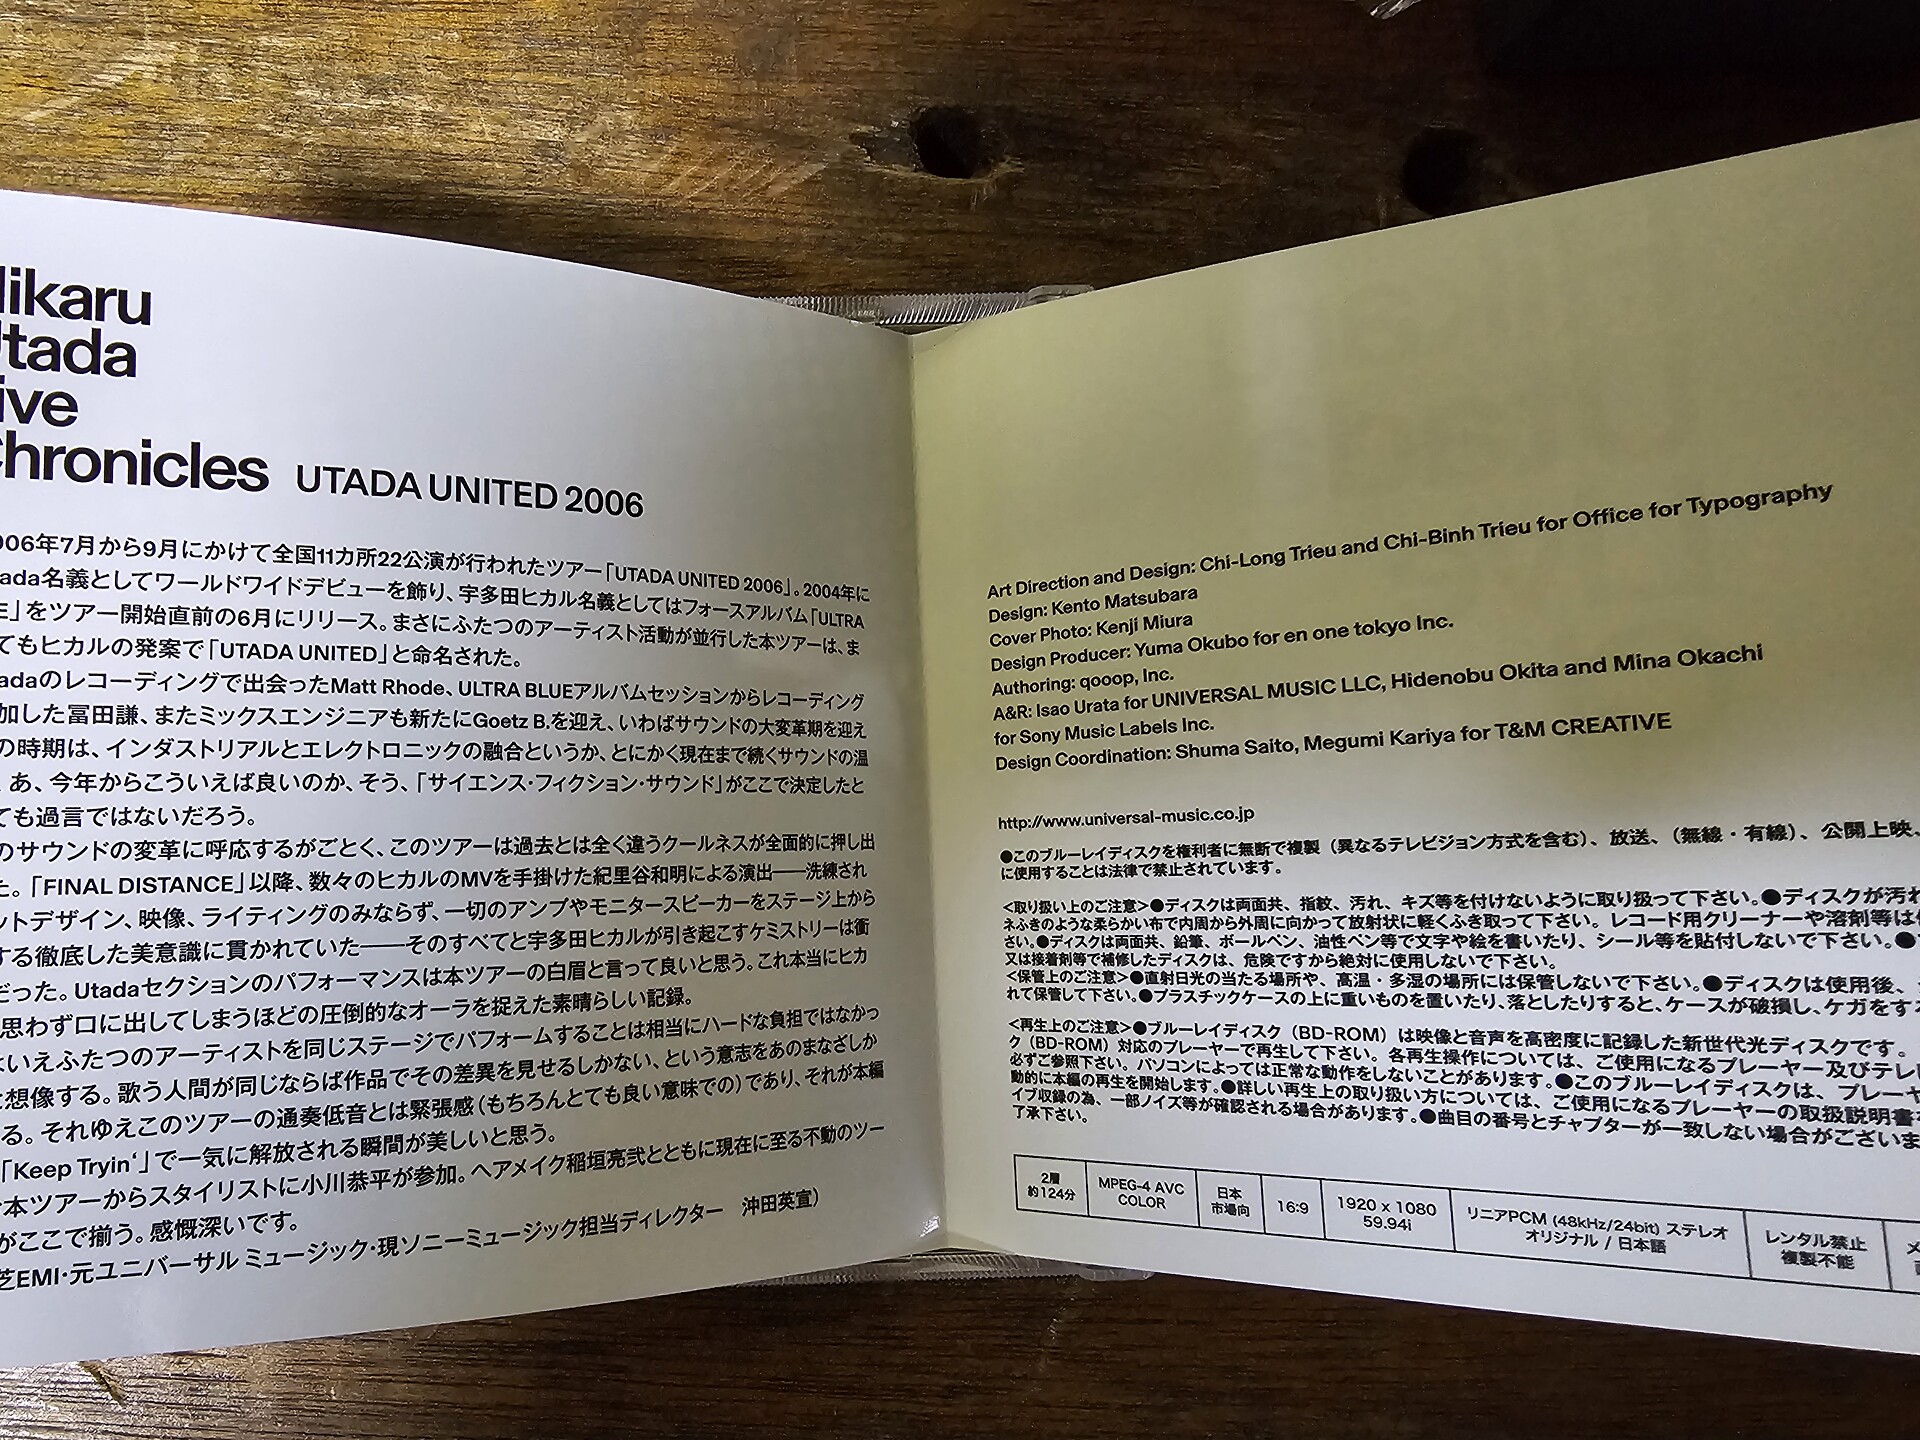 ikaru
tada
ive
hronicles UTADA UNITED 2006
06年7月から9月にかけて全国11カ所22公演が行われたツアー「UTADA UNITED 2006」。2004年に
ada名義としてワールドワイドデビューを飾り、宇多田ヒカル名義としてはフォースアルバム「ULTRA
E」をツアー開始直前の6月にリリース。まさにふたつのアーティスト活動が並行した本ツアーは、ま
てもヒカルの発案で「UTADA UNITED」と命名された。
adaのレコーディングで出会ったMatt Rhode、ULTRA BLUEアルバムセッションからレコーディング
加した冨田謙、またミックスエンジニアも新たにGoetz B.を迎え、いわばサウンドの大変革期を迎え
の時期は、インダストリアルとエレクトロニックの融合というか、とにかく現在まで続くサウンドの温
、あ、今年からこういえば良いのか、そう、「サイエンス・フィクション・サウンド」がここで決定したと
ても過言ではないだろう。
のサウンドの変革に呼応するがごとく、このツアーは過去とは全く違うクールネスが全面的に押し出
た。「FINAL DISTANCE」以降、数々のヒカルのMVを手掛けた紀里谷和明による演出――洗練され
ットデザイン、映像、ライティングのみならず、一切のアンプやモニタースピーカーをステージ上から
する徹底した美意識に貫かれていた――そのすべてと宇多田ヒカルが引き起こすケミストリーは衝
だった。Utadaセクションのパフォーマンスは本ツアーの白眉と言って良いと思う。これ本当にヒカ
思わず口に出してしまうほどの圧倒的なオーラを捉えた素晴らしい記録。
はいえふたつのアーティストを同じステージでパフォームすることは相当にハードな負担ではなかっ
と想像する。歌う人間が同じならば作品でその差異を見せるしかない、という意志をあのまなざしか
る。それゆえこのツアーの通奏低音とは緊張感（もちろんとても良い意味での）であり、それが本編
「Keep Tryin‘」で一気に解放される瞬間が美しいと思う。
本ツアーからスタイリストに小川恭平が参加。ヘアメイク稲垣亮弐とともに現在に至る不動のツー
がここで揃う。感慨深いです。
芝EMI・元ユニバーサル ミュージック・現ソニーミュージック担当ディレクター 沖田英宣）
Art Direction and Design: Chi-Long Trieu and Chi-Binh Trieu for Office for Typography
Design: Kento Matsubara
Cover Photo: Kenji Miura
Design Producer: Yuma Okubo for en one tokyo Inc.
Authoring: qooop, Inc.
A&R: Isao Urata for UNIVERSAL MUSIC LLC, Hidenobu Okita and Mina Okachi
for Sony Music Labels Inc.
Design Coordination: Shuma Saito, Megumi Kariya for T&M CREATIVE
http://www.universal-music.co.jp
●このブルーレイディスクを権利者に無断で複製（異なるテレビジョン方式を含む）、放送、（無線・有線）、公開上映、
に使用することは法律で禁止されています。
<取り扱い上のご注意>●ディスクは両面共、指紋、汚れ、キズ等を付けないように取り扱って下さい。●ディスクが汚れ
ネふきのような柔らかい布で内周から外周に向かって放射状に軽くふき取って下さい。レコード用クリーナーや溶剤等は
さい。●ディスクは両面共、鉛筆、ボールペン、油性ペン等で文字や絵を書いたり、シール等を貼付しないで下さい。●
又は接着剤等で補修したディスクは、危険ですから絶対に使用しないで下さい。
<保管上のご注意>●直射日光の当たる場所や、高温・多湿の場所には保管しないで下さい。●ディスクは使用後、
れて保管して下さい。●プラスチックケースの上に重いものを置いたり、落としたりすると、ケースが破損し、ケガをする
<再生上のご注意>●ブルーレイディスク（BD-ROM）は映像と音声を高密度に記録した新世代光ディスクです。
ク（BD-ROM）対応のプレーヤーで再生して下さい。各再生操作については、ご使用になるプレーヤー及びテレビ
必ずご参照下さい。パソコンによっては正常な動作をしないことがあります。●このブルーレイディスクは、プレーヤ
動的に本編の再生を開始します。●詳しい再生上の取り扱い方については、ご使用になるプレーヤーの取扱説明書
イブ収録の為、一部ノイズ等が確認される場合があります。●曲目の番号とチャプターが一致しない場合がございま
了承下さい。
2層
約124分
MPEG-4 AVC
COLOR
日本
市場向
16:9
1920 x 1080
59.94i
リニアPCM (48kHz/24bit) ステレオ
オリジナル / 日本語
レンタル禁止
複製不能